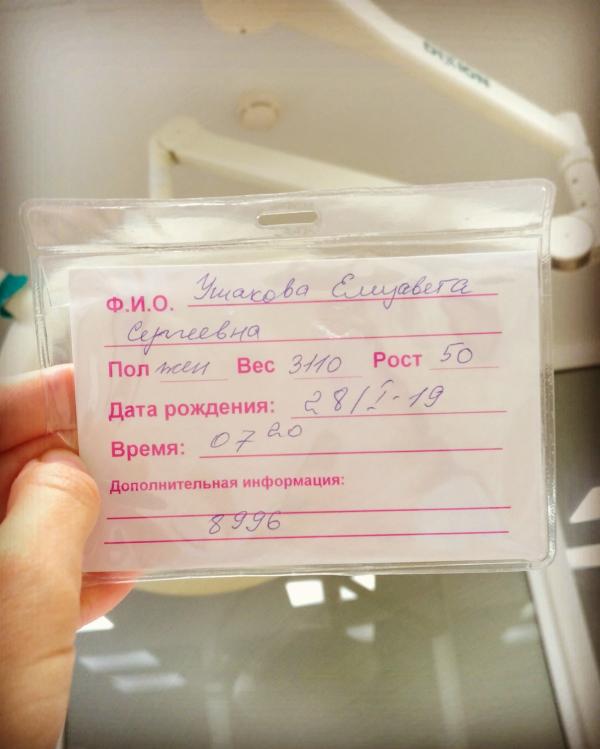 DIXION
Ф.И.О. Ушакова Елизавета
Сергеевна
Пол жен Вес 3110 Рост 50
Дата рождения: 28/I-19
Время: 07 20
Дополнительная информация:
8996